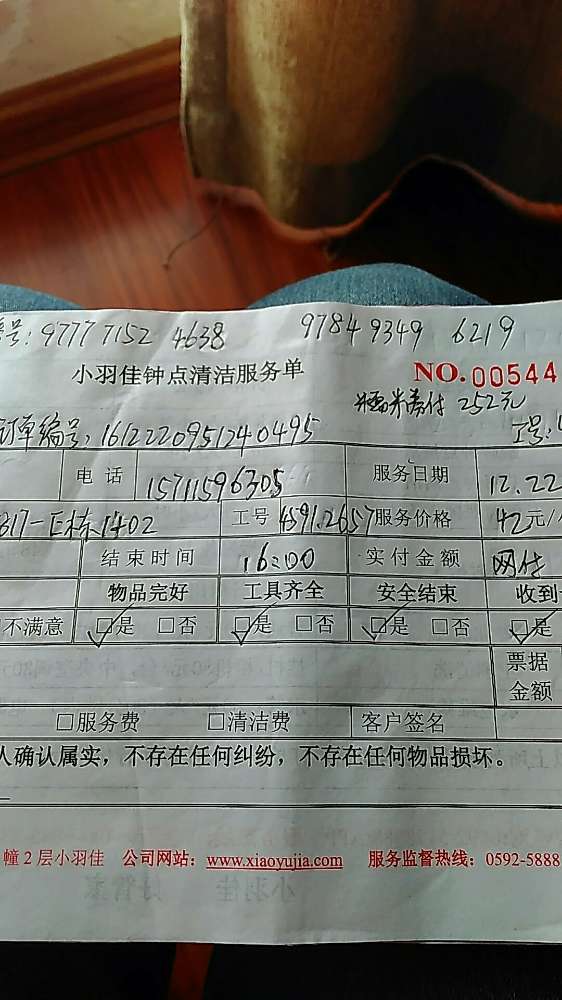 号: 9777 7152 4638 9784 9349 6219
小羽佳钟点清洁服务单 NO.00544
糯米券付 252元
订单编号: 1612220951240495 工号:
电话 15711596305 服务日期 12.22
817-E栋1402 工号 4591.2657 服务价格 42元/
结束时间 16:00 实付金额 网付
物品完好 工具齐全 安全结束 收到
不满意 ☑是 □否 ☑是 □否 ☑是 □否 ☑是
票据
金额
□服务费 □清洁费 客户签名
人确认属实，不存在任何纠纷，不存在任何物品损坏。
幢2层小羽佳 公司网站：www.xiaoyujia.com 服务监督热线：0592-5888